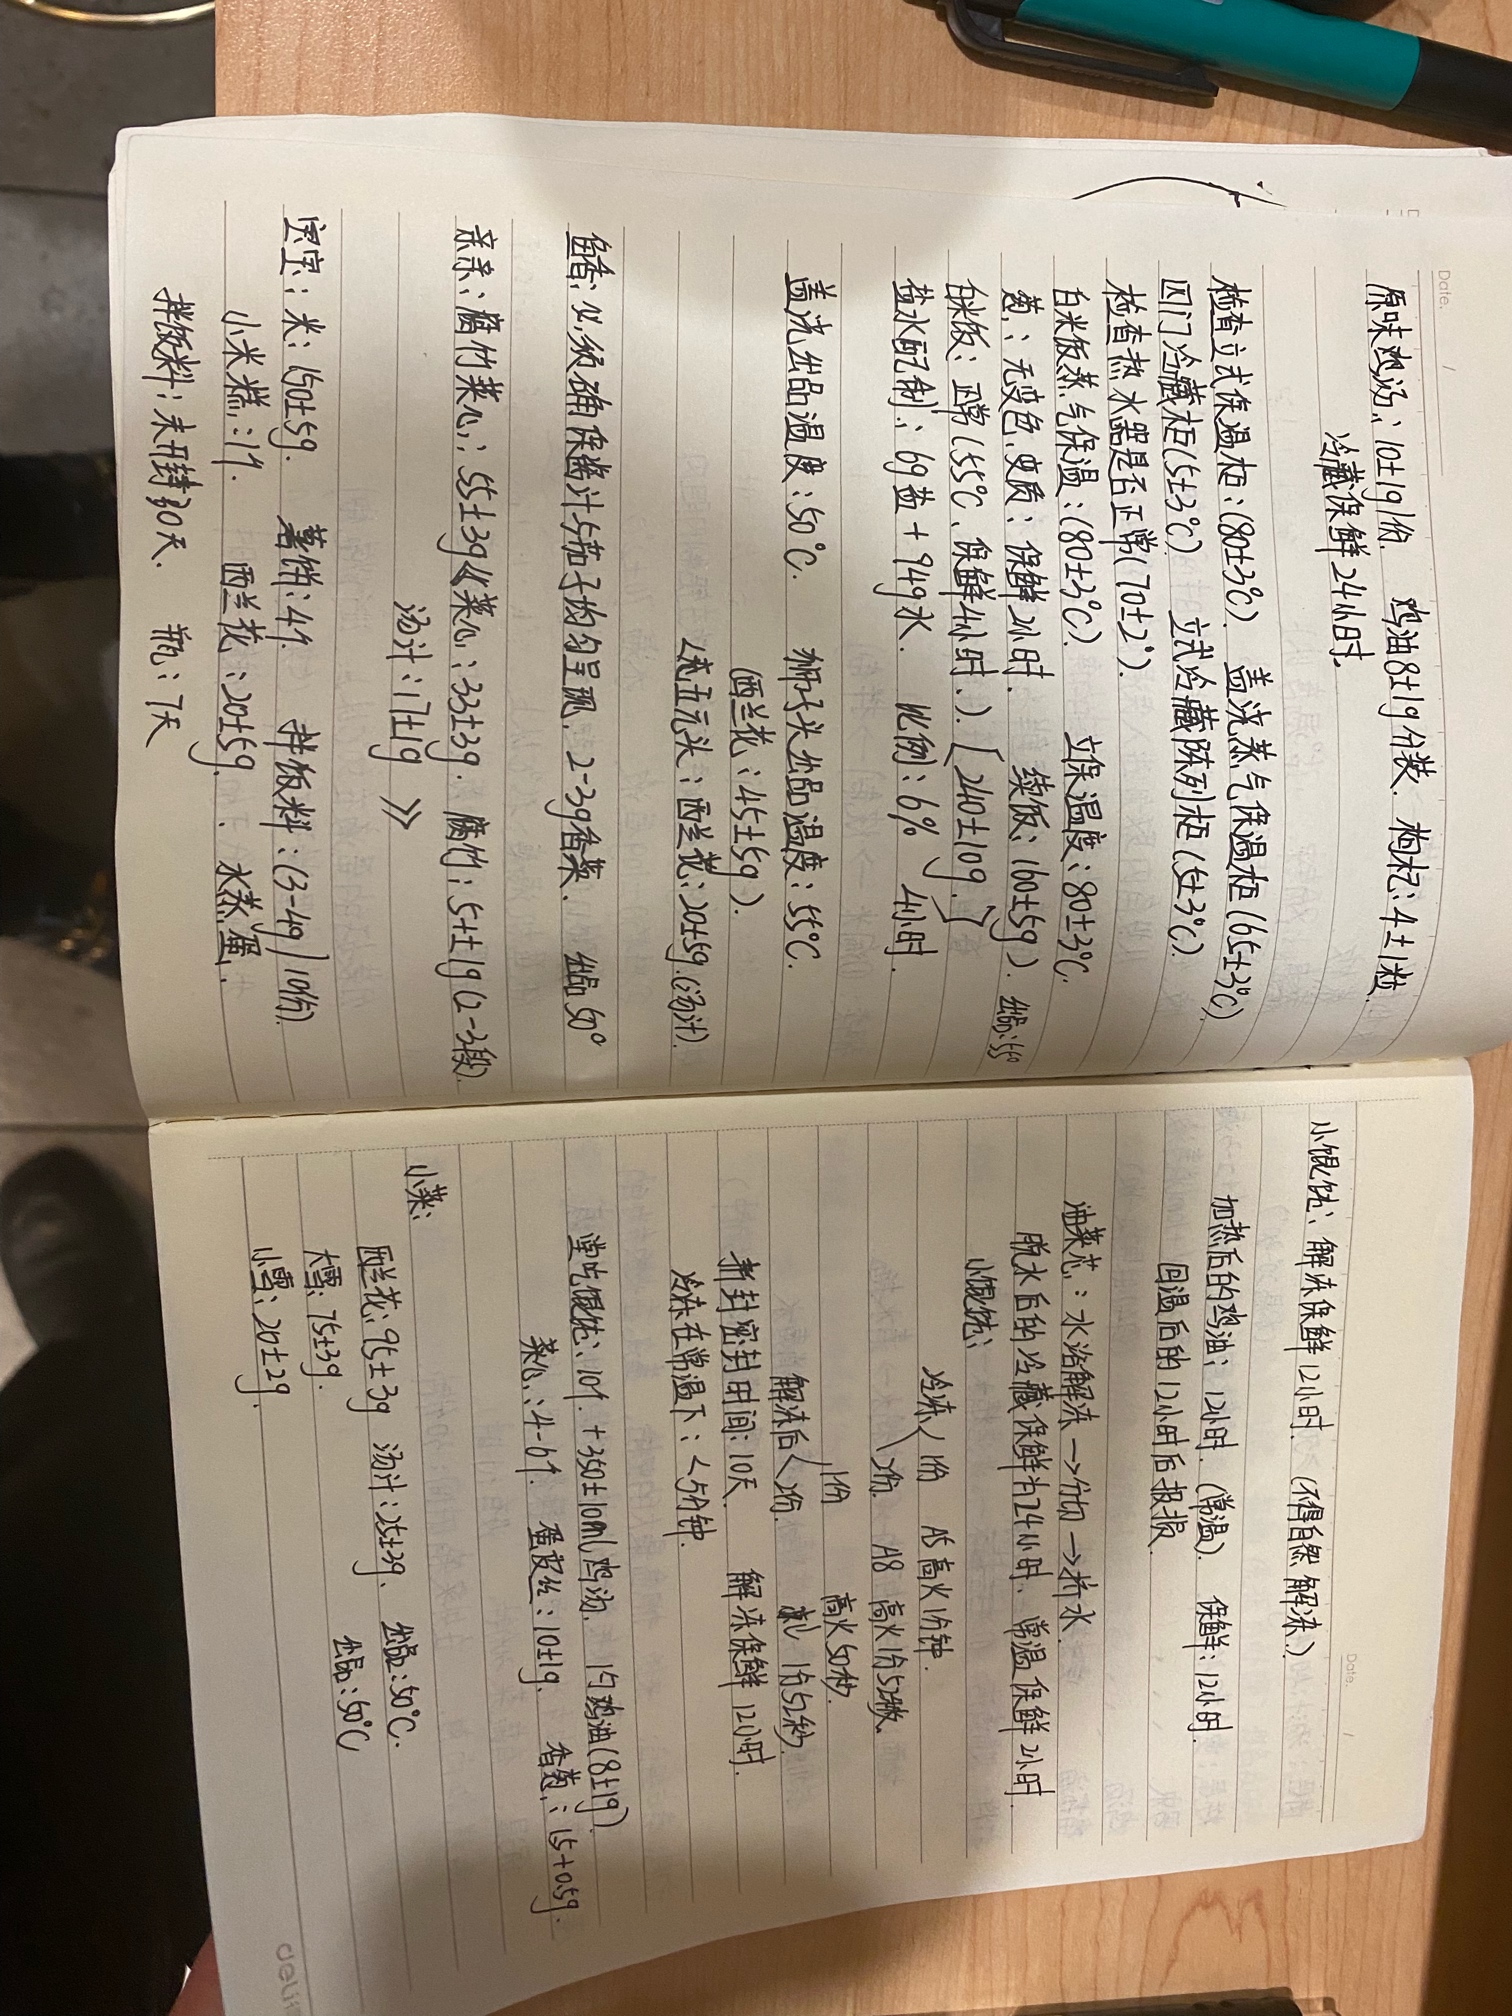 Date. /
原味鸡汤：10±1g/份. 鸡油8±1g分装. 枸杞：4±1粒.
冷藏保鲜24小时.
检查立式保温柜：(80±3℃). 盖浇蒸气保温柜(65±3℃)
四门冷藏柜(5±3℃). 立式冷藏陈列柜(5±3℃).
检查热水器是否正常(70±2°).
白米饭蒸气保温：(80±3℃). 立保温度：80±3℃.
葱：无变色、变质：保鲜2小时. 续饭：160±5g). 出品：55°
白米饭：正常(55℃、保鲜4小时.) [240±10g.]
盐水配制：6g盐+94g水. 比例：6% 4小时.
盖浇出品温度：50℃. 狮子头出品温度：55℃.
(西兰花：45±5g).
元头：西兰花：20±5g.(汤汁).
鱼香：必须确保酱汁与茄子均匀呈现. 2-3g香菜. 出品50°
亲亲：腐竹菜心：55±3g 菜心：33±3g. 腐竹：5±1g(2-3段).
汤汁：17±1g 》
宝宝：米：150±5g. 薯饼：4个. 拌饭料：(3-4g/10份)
小米糕：1个. 西兰花：20±5g. 水蒸蛋.
拌饭料：未开封30天. 瓶：7天
Date. /
小馄饨：解冻保鲜12小时 (不得自然解冻.)
加热后的鸡油：12小时. (常温). 保鲜：12小时.
回温后的12小时后报损.
油菜芯：水浴解冻→分切→挤水.
脱水后的冷藏保鲜为24小时、常温保鲜2小时.
小馄饨：
冷冻 1份 A5 高火1分钟.
2份. A8 高火1分52秒.
1份 高火50秒.
解冻后 2份. 1分52秒.
新封密封时间：10天. 解冻保鲜12小时.
冷冻在常温下：<5分钟.
堂吃馄饨：10个.+350±10ml鸡汤. 1勺鸡油(8±1g)
菜心：4-6个. 蛋皮丝：10±1g. 香葱：1.5+0.5g.
小菜：
西兰花：95±3g 汤汁：25±3g. 出品：50℃.
大雪：75±3g. 出品：50℃
小雪：20±2g.
deli